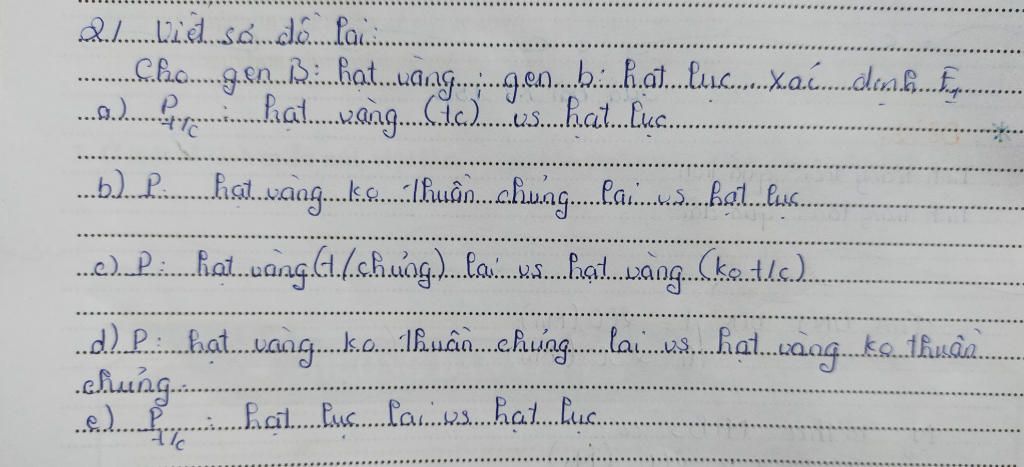 2/. Viết sơ đồ lai:
Cho gen B: hạt vàng; gen b: hạt lục. xác định F₁
a) P t/c : hạt vàng (tc) vs hạt lục
b) P: hạt vàng ko thuần chủng lai vs hạt lục
c) P: hạt vàng (t/chủng) lai vs hạt vàng (ko t/c)
d) P: hạt vàng ko thuần chủng lai vs hạt vàng ko thuần
chủng.
e) P t/c : hạt lục lai vs hạt lục